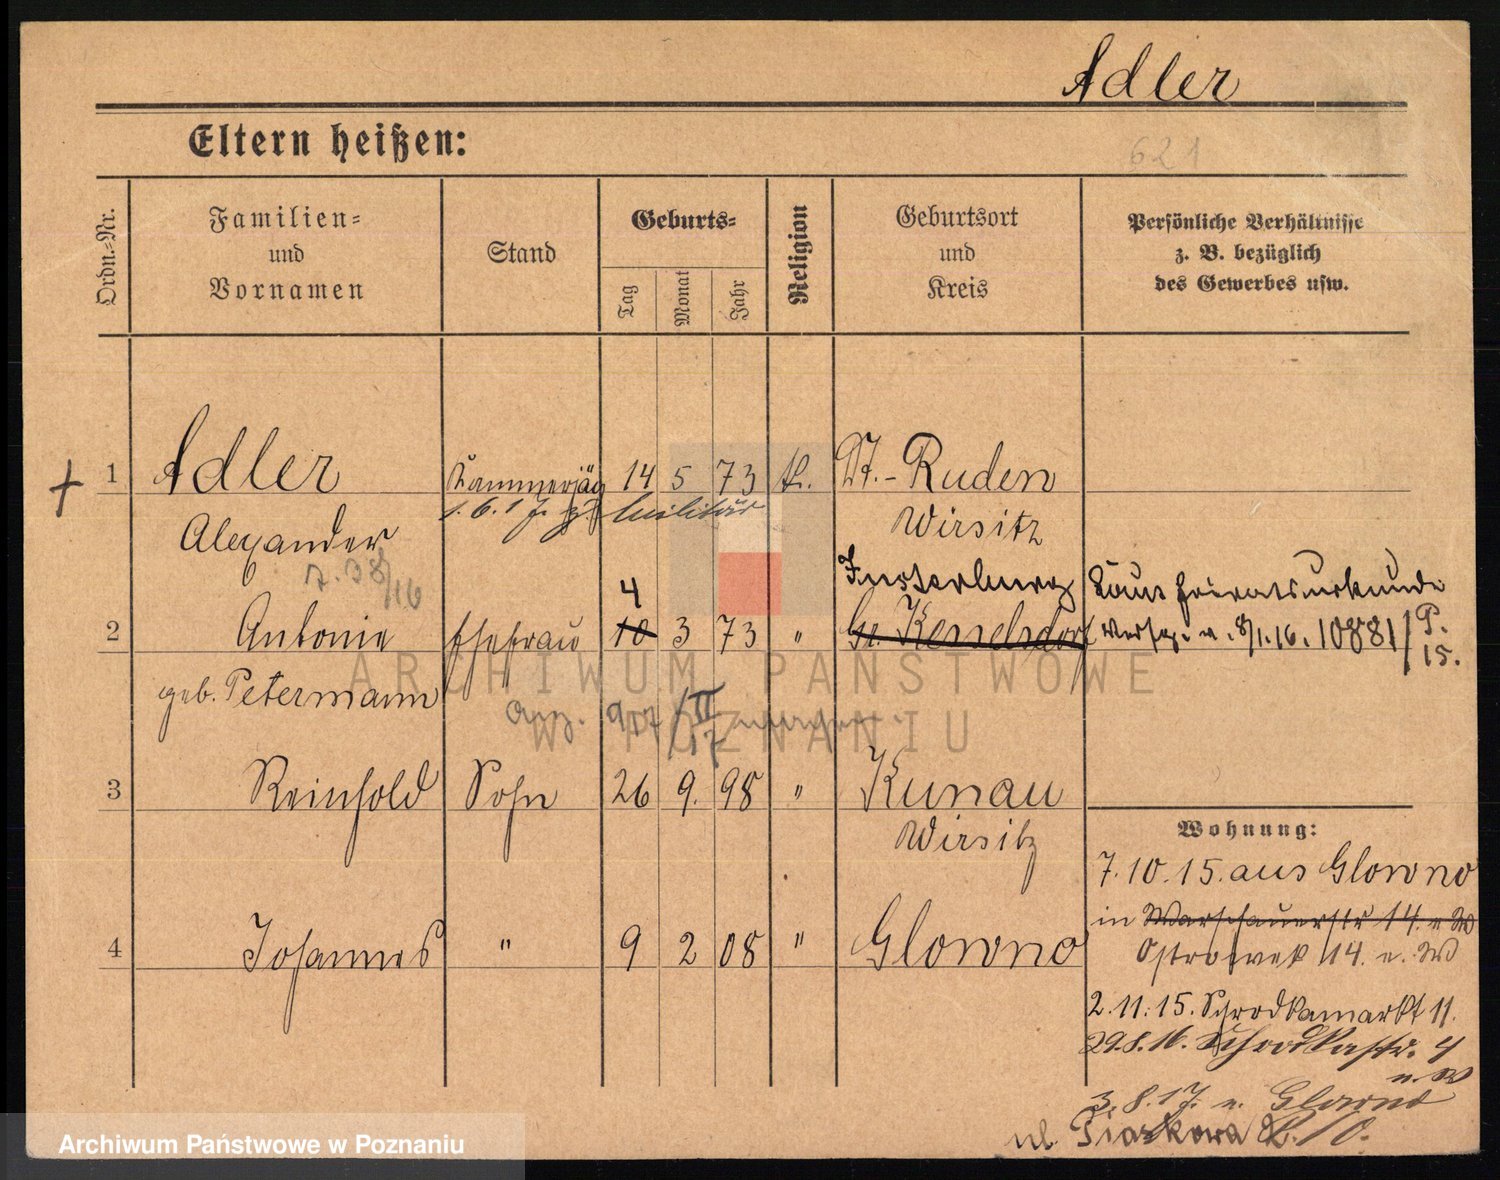 Adler
Eltern heißen:
621
Ordn.-Nr.
Familien-
und
Vornamen
Stand
Geburts-
Tag
Monat
Jahr
Religion
Geburtsort
und
Kreis
Persönliche Verhältnisse
z. B. bezüglich
des Gewerbes usw.
1 Adler Kammerjäg 14 5 73 k. Dt.-Ruden
1.6.17. z. Militär
Alexander Wirsitz
Insterburg Laut Heiratsurkunde
4
2 Antonie Ehefrau 10 3 73 " Gr. 8/1.16. 10881/P.
15.
geb. Petermann
3 Reinhold Sohn 26 9. 98 " Kunau
Wirsitz
Wohnung:
7.10.15. aus Glowno
in Warschauerstr 14. e W
4 Johannes " 9 2 08 " Glowno
Ostrowek 14. e. W
2.11.15. Schrodkamarkt 11.
29.8.16. Schrodkastr. 4
3.8.17. n. Glowno
ul. Piaskowa 10.
ARCHIWUM PAŃSTWOWE
W POZNANIU
Archiwum Państwowe w Poznaniu